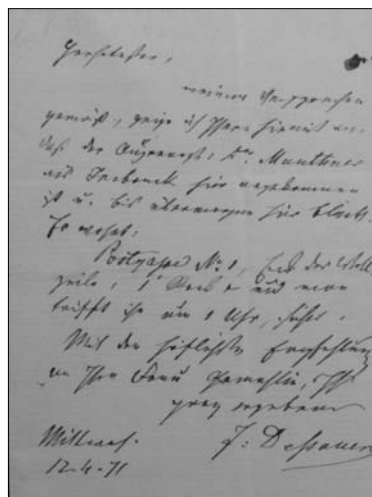 Hochverehrter,
meinem Versprechen
gemäß, zeige ich Ihnen hiemit an
daß der Augenarzt, Dr. Mauthner
aus Insbruck hier angekommen
ist u. bis übermorgen hier bleibt.
Er wohnt:
Postgasse No 1, Eck der Woll
zeile, 1 Stock und man
trifft ihn um 1 Uhr,
Mit den höflichsten Empfehlungen
an Ihre Frau Gemahlin, Ihr
ganz ergebener
J: Dessauer
Mittwoch.
12-4-71